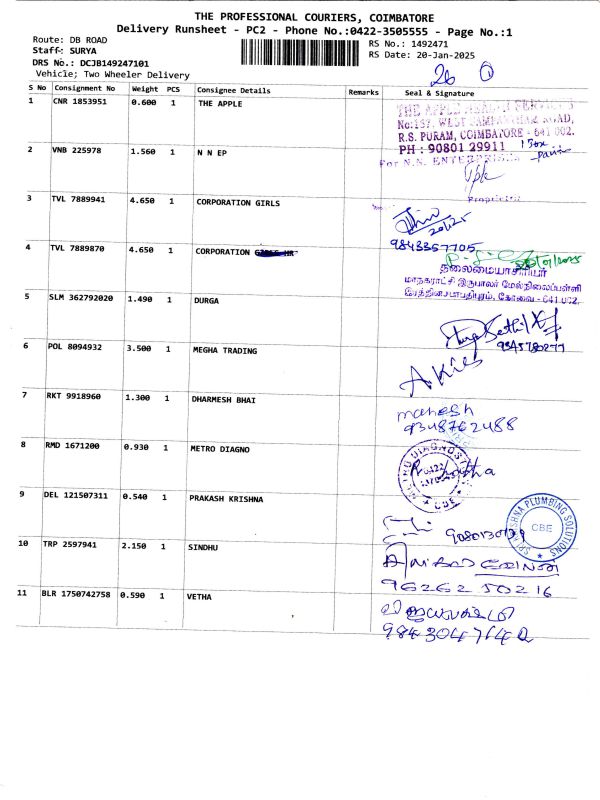 THE PROFESSIONAL COURIERS, COIMBATORE
Delivery Runsheet - PC2 - Phone No.:0422-3505555 - Page No.:1
Route: DB ROAD
RS No.: 1492471
Staff: SURYA
RS Date: 20-Jan-2025
DRS No.: DCJB149247101
Vehicle; Two Wheeler Delivery
26 1
S No Consignment No Weight PCS Consignee Details Remarks Seal & Signature
1 CNR 1853951 0.600 1 THE APPLE
R.S. PURAM, COIMBATORE - 641 002.
PH : 90801 29911
1 Box
2 VNB 225978 1.560 1 N N EP
For N.N. ENTERPRISES
Proprietor
3 TVL 7889941 4.650 1 CORPORATION GIRLS
20/1/25
9843367705
4 TVL 7889870 4.650 1 CORPORATION
தலைமையாசிரியர்
மாநகராட்சி இருபாலர் மேல்நிலைப்பள்ளி
இரத்தினசபாபதிபுரம், கோவை - 641 002.
5 SLM 362792020 1.490 1 DURGA
9345780277
6 POL 8094932 3.500 1 MEGHA TRADING
7 RKT 9918960 1.300 1 DHARMESH BHAI
mahesh
9348762488
8 RMD 1671200 0.930 1 METRO DIAGNO
CBE
9 DEL 121507311 0.540 1 PRAKASH KRISHNA
SRI KRISHNA PLUMBING SOLUTIONS
CBE
10 TRP 2597941 2.150 1 SINDHU
96262 50216
11 BLR 1750742758 0.590 1 VETHA
9843047642